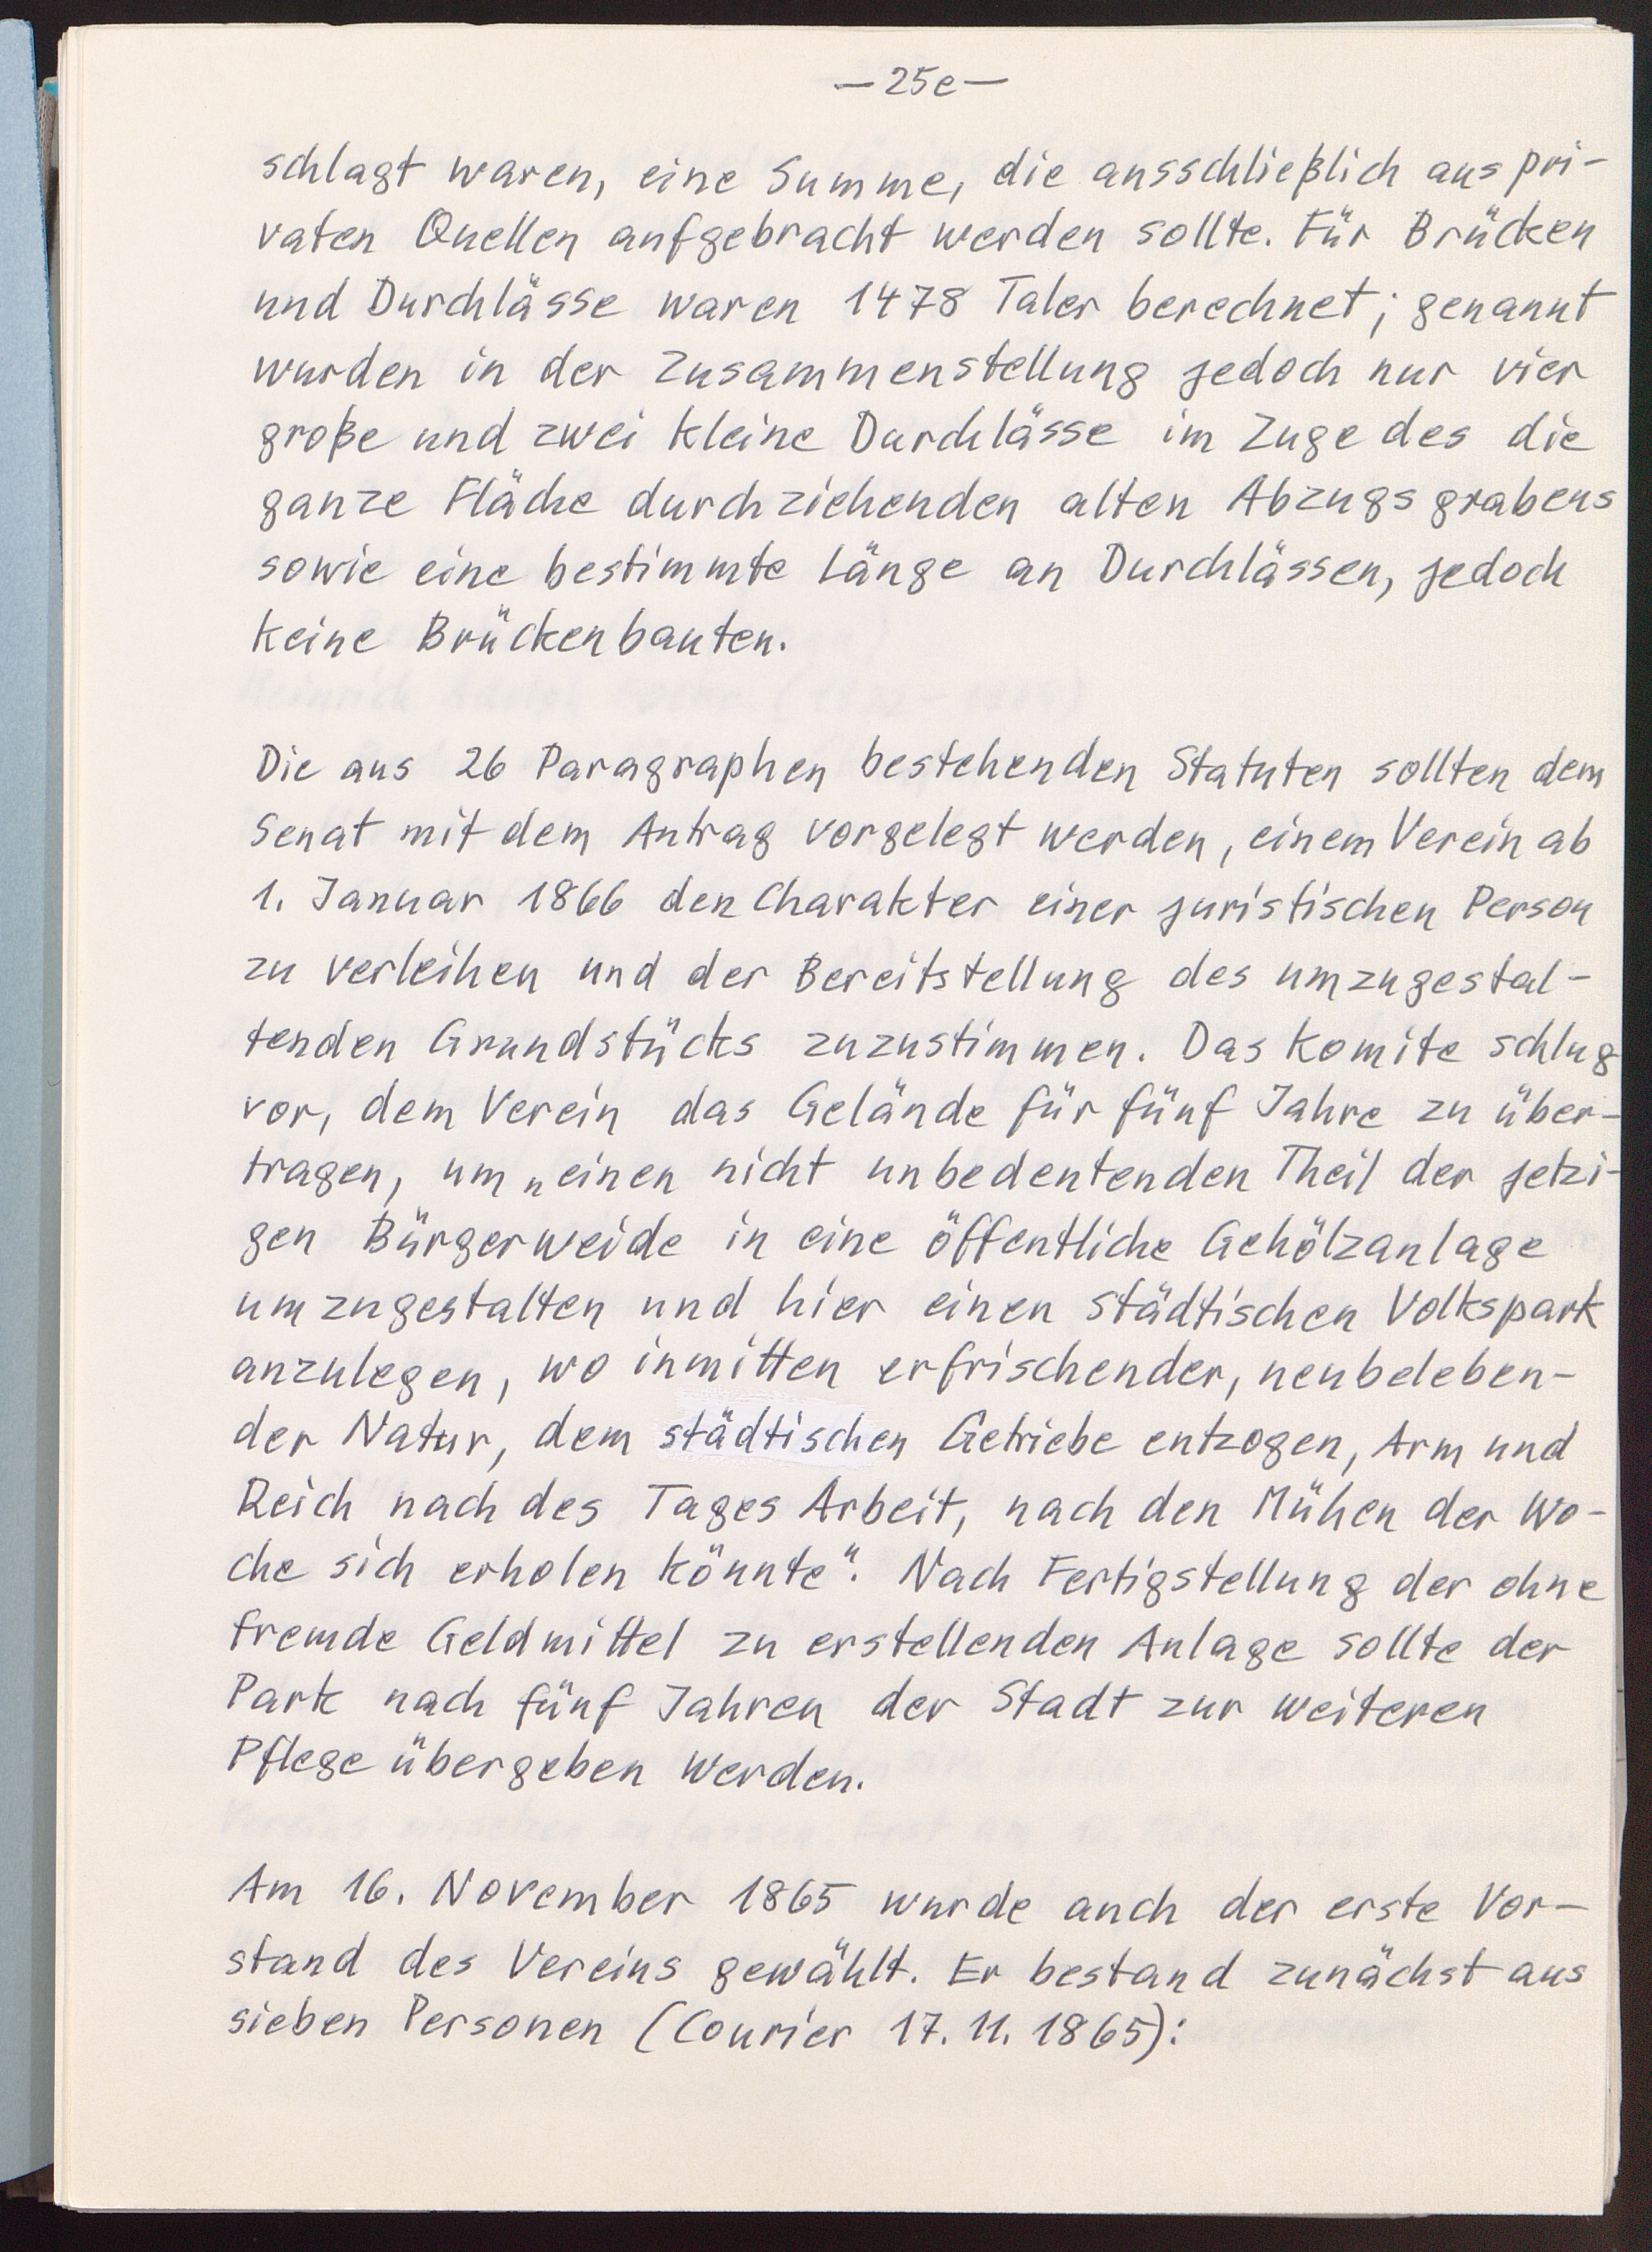 — 25e —
schlagt waren, eine Summe, die ausschließlich aus pri-
vaten Quellen aufgebracht werden sollte. Für Brücken
und Durchlässe waren 1478 Taler berechnet; genannt
wurden in der Zusammenstellung jedoch nur vier
große und zwei kleine Durchlässe im Zuge des die
ganze Fläche durchziehenden alten Abzugsgrabens
sowie eine bestimmte Länge an Durchlässen, jedoch
keine Brückenbauten.
Die aus 26 Paragraphen bestehenden Statuten sollten dem
Senat mit dem Antrag vorgelegt werden, einem Verein ab
1. Januar 1866 den Charakter einer juristischen Person
zu verleihen und der Bereitstellung des umzugestal-
tenden Grundstücks zuzustimmen. Das Komite schlug
vor, dem Verein das Gelände für fünf Jahre zu über-
tragen, um „einen nicht unbedeutenden Theil der jetzi-
gen Bürgerweide in eine öffentliche Gehölzanlage
umzugestalten und hier einen städtischen Volkspark
anzulegen, wo inmitten erfrischender, neubeleben-
der Natur, dem städtischen Getriebe entzogen, Arm und
Reich nach des Tages Arbeit, nach den Mühen der Wo-
che sich erholen könnte“. Nach Fertigstellung der ohne
fremde Geldmittel zu erstellenden Anlage sollte der
Park nach fünf Jahren der Stadt zur weiteren
Pflege übergeben werden.
Am 16. November 1865 wurde auch der erste Vor-
stand des Vereins gewählt. Er bestand zunächst aus
sieben Personen (Courier 17. 11. 1865):